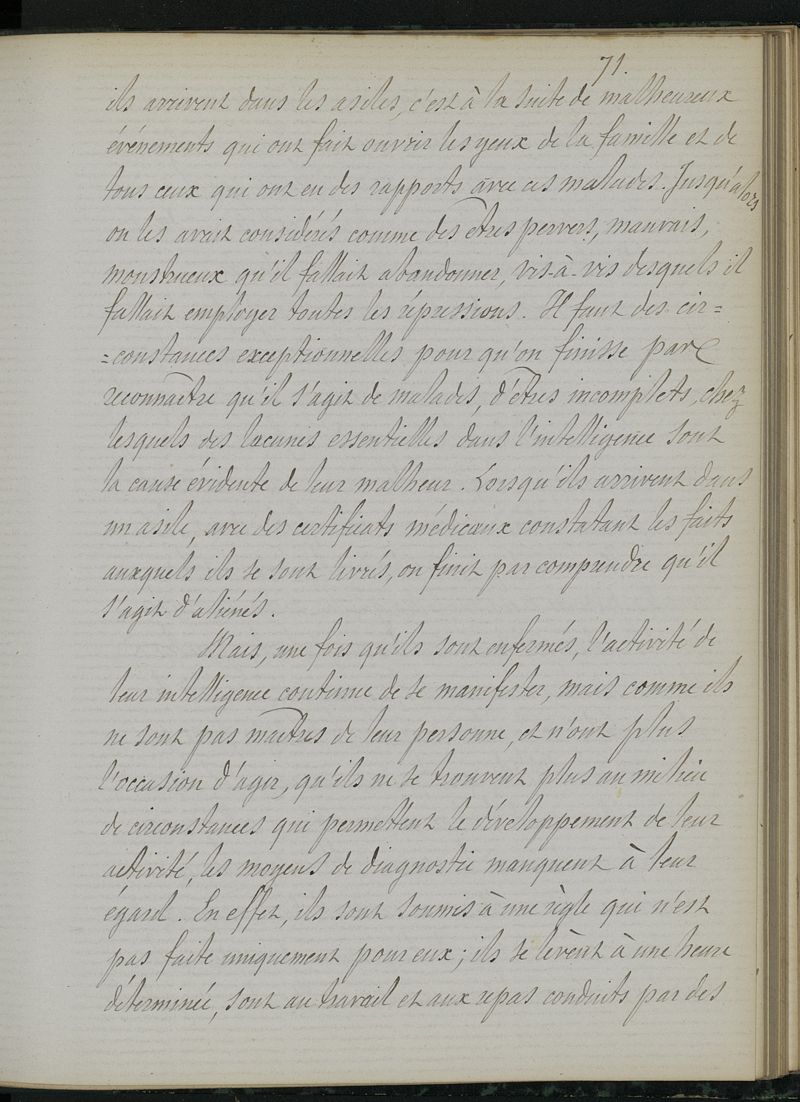 71.
ils arrivent dans les asiles, c'est à la suite de malheureux
événements qui ont fait ouvrir les yeux de la famille et de
tous ceux qui ont eu des rapports avec ces malades. Jusqu'alors
on les avait considérés comme des êtres pervers, mauvais,
monstrueux qu'il fallait abandonner, vis-à-vis desquels il
fallait employer toutes les répressions. Il faut des cir=
=constances exceptionnelles pour qu'on finisse par
reconnaître qu'il s'agit de malades, d'êtres incomplets, chez
lesquels des lacunes essentielles dans l'intelligence sont
la cause évidente de leur malheur. Lorsqu'ils arrivent dans
un asile, avec des certificats médicaux constatant les faits
auxquels ils se sont livrés, on finit par comprendre qu'il
s'agit d'aliénés.
Mais, une fois qu'ils sont enfermés, l'activité de
leur intelligence continue de se manifester, mais comme ils
ne sont pas maîtres de leur personne, et n'ont plus
l'occasion d'agir, qu'ils ne se trouvent plus au milieu
de circonstances qui permettent le développement de leur
activité, les moyens de diagnostic manquent à leur
égard. En effet, ils sont soumis à une règle qui n'est
pas faite uniquement pour eux ; ils se lèvent à une heure
déterminée, sont au travail et aux repas conduits par des